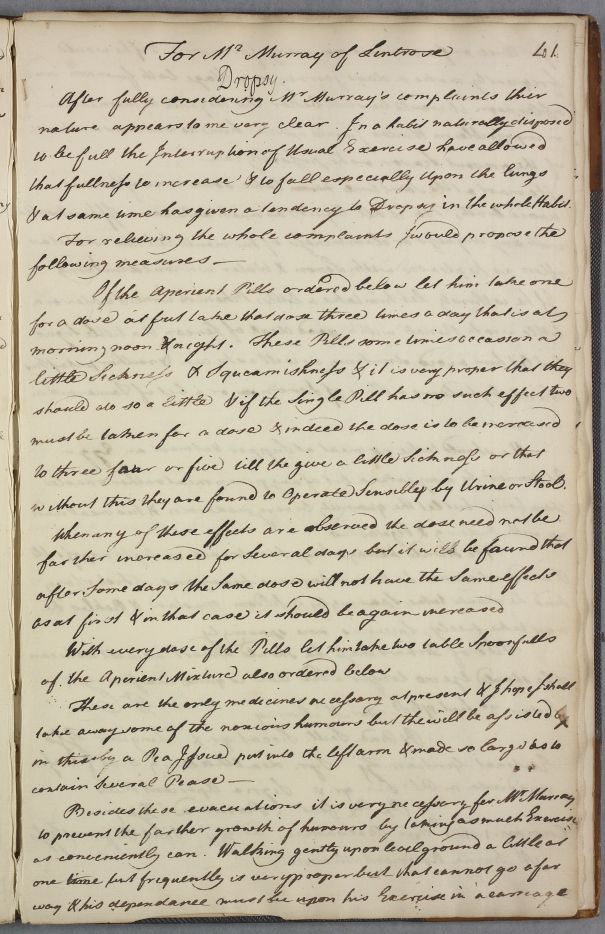 For Mr Murray of Lintrose 41.
Dropsy.
After fully considering Mr Murray's complaints their
nature appears to me very clear. In a habit naturally disposed
to be full the Interruption of Usual Exercise have allowed
that fullness to increase & to fall especially Upon the Lungs
& at same time has given a tendency to Dropsy in the whole Habit.
For relieving the whole complaints I would propose the
following measures —
Of the Aperient Pills ordered below let him take one
for a dose at first take that dose three times a day that is at
morning noon & night. These Pills some times occasion a
little Sickness & Squeamishness & it is very proper that they
should do so a little & if the Single Pill has no such effect two
must be taken for a dose & indeed the dose is to be increased
to three four or five till the give a little Sickness or that
without this they are found to Operate Sensibly by Urine or Stool.
When any of these effects are observed the dose need not be
farther increased for Several days but it will be found that
after Some days the Same dose will not have the Same effects
as at first & in that case it should be again increased
With every dose of the Pills let him take two table Spoonfulls
of the Aperient Mixture also ordered below
These are the only medicines necessary at present & I hope shall
take away some of the noxious humours but the will be assisted
in this by a Pea Issue put into the left arm & made so large as to
contain Several Pease —
Besides these evacuations it is very necessary for Mr Murray
to prevent the farther growth of humours by taking as much Exercise
as conveniently can. Walking gently upon level ground a little at
one time but frequently is very proper but that cannot go a far
way & his dependance must be upon his Exercise in a carriage